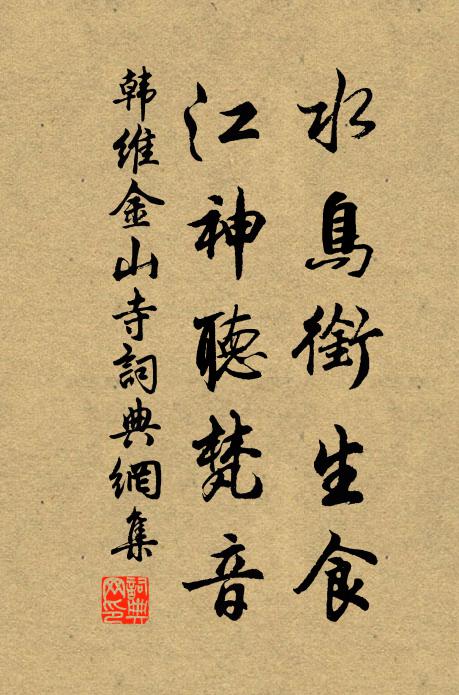 水鳥銜生食
江神聽梵音
韩维金山寺詞典網集
詞典網印